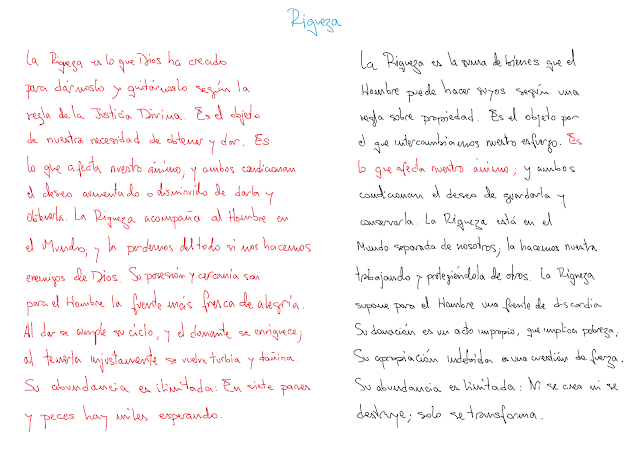 Riqueza
La Riqueza es lo que Dios ha creado
para dárnoslo y quitárnoslo según la
regla de la Justicia Divina. Es el objeto
de nuestra necesidad de obtener y dar. Es
lo que afecta nuestro ánimo, y ambos condicionan
el deseo aumentado o disminuido de darla y
obtenerla. La Riqueza acompaña al Hombre en
el Mundo, y la perdemos del todo si nos hacemos
enemigos de Dios. Su posesión y cercanía son
para el Hombre la fuente más fresca de alegría.
Al dar se cumple su ciclo, y el donante se enriquece;
al tenerla injustamente se vuelve turbia y dañina.
Su abundancia es ilimitada: En siete panes
y peces hay miles esperando.
La Riqueza es la suma de bienes que el
Hombre puede hacer suyos según una
regla sobre propiedad. Es el objeto por
el que intercambiamos nuestro esfuerzo. Es
lo que afecta nuestro ánimo; y ambos
condicionan el deseo de guardarla y
conservarla. La Riqueza está en el
Mundo separada de nosotros; la hacemos nuestra
trabajando y protegiéndola de otros. La Riqueza
supone para el Hombre una fuente de discordia
Su donación es un acto impropio, que implica pobreza;
Su apropiación indebida es una cuestión de fuerza.
Su abundancia es limitada: Ni se crea ni se
destruye; solo se transforma.